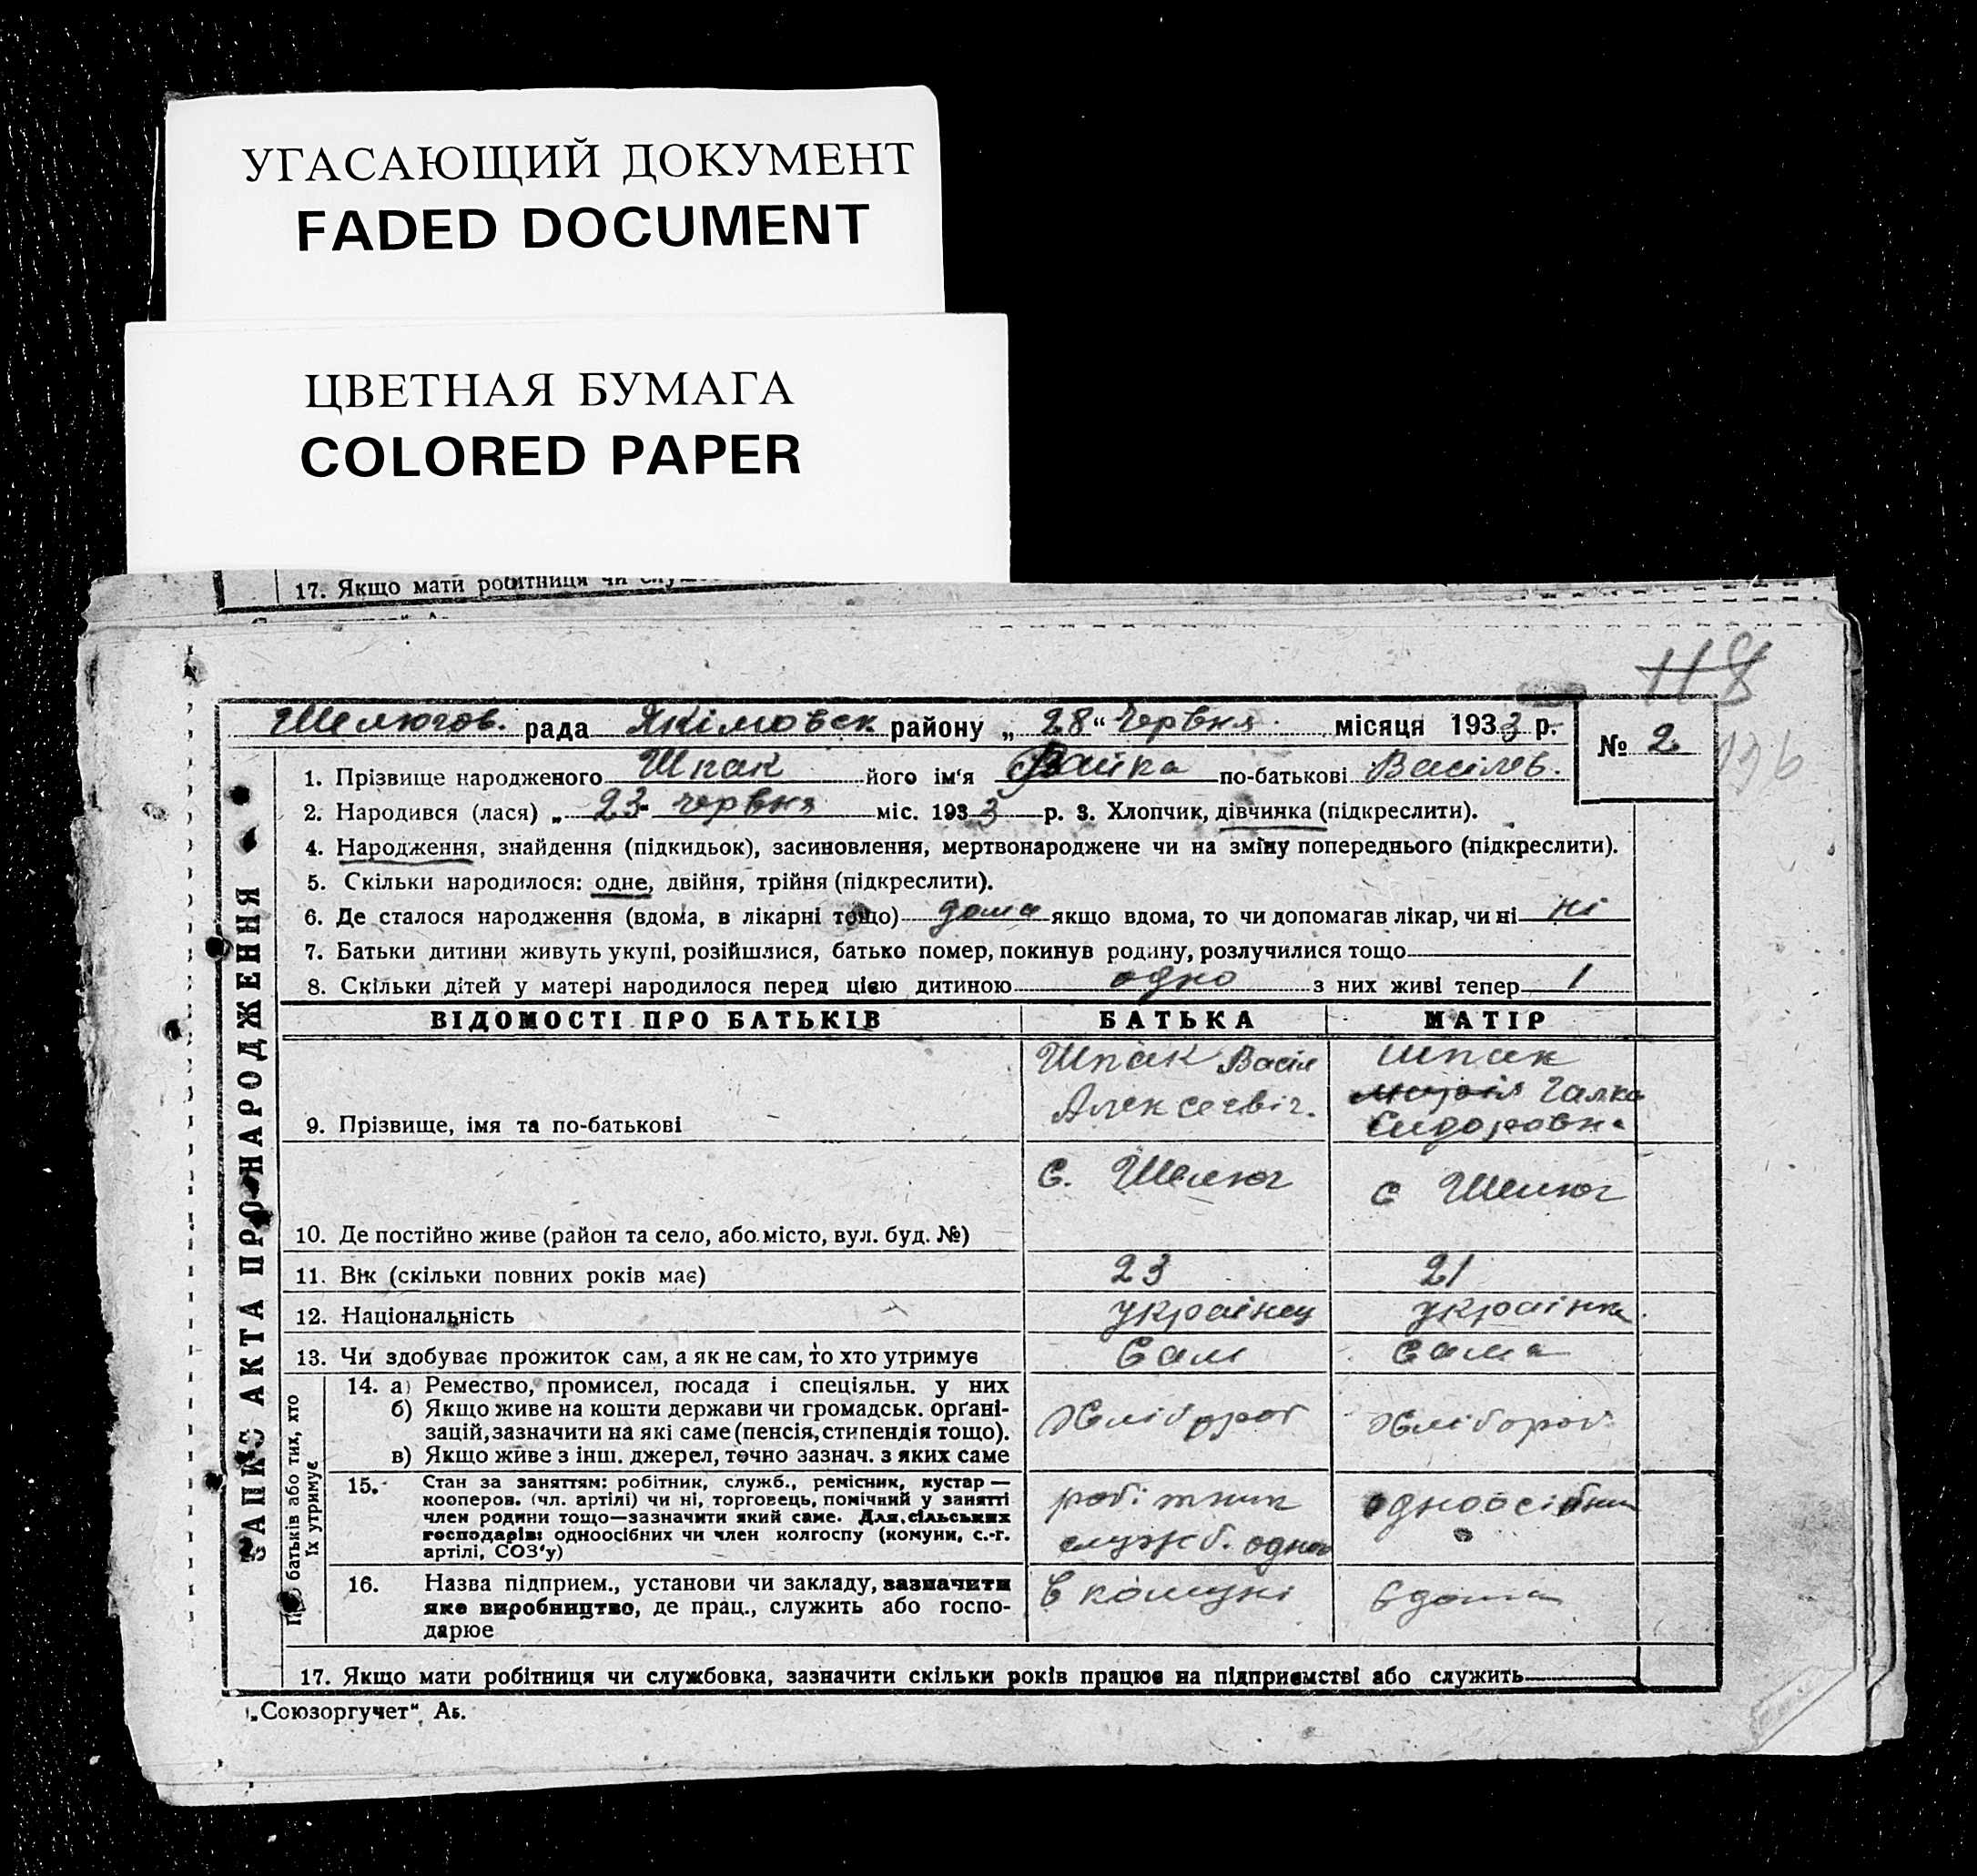 УГАСАЮЩИЙ ДОКУМЕНТ
FADED DOCUMENT
ЦВЕТНАЯ БУМАГА
COLORED PAPER
17. Якщо мати робітниця чи
118
Шелюгов. рада Якімовск району „28“ Червня місяця 1933 р.
№ 2
136
1. Прізвище народженого Шпак його ім'я Райка по-батькові Васілев.
2. Народився (лася) „ 23 червня міс. 1933 р. 3. Хлопчик, дівчинка (підкреслити).
4. Народження, знайдення (підкидьок), засиновлення, мертвонароджене чи на зміну попереднього (підкреслити).
5. Скільки народилося: одне, двійня, трійня (підкреслити).
6. Де сталося народження (вдома, в лікарні тощо) дома якщо вдома, то чи допомагав лікар, чи ні ні
7. Батьки дитини живуть укупі, розійшлися, батько помер, покинув родину, розлучилися тощо
8. Скільки дітей у матері народилося перед цією дитиною одно з них живі тепер 1
ЗАПИС АКТА ПРО НАРОДЖЕННЯ
ВІДОМОСТІ ПРО БАТЬКІВ БАТЬКА МАТІР
Шпак Васіл Шпак
Алексеевіч. Галка
9. Прізвище, імя та по-батькові Сидоровна
с. Шелюг с Шелюг
10. Де постійно живе (район та село, або місто, вул. буд. №)
11. Вік (скільки повних років має) 23 21
12. Національність українец українка
13. Чи здобуває прожиток сам, а як не сам, то хто утримує Сам Сама
батьків або тих, хто
їх утримує
14. а) Ремество, промисел, посада і спеціяльн. у них
б) Якщо живе на кошти держави чи громадськ. орґані-
зацій, зазначити на які саме (пенсія, стипендія тощо). Хлібороб Хлібороб
в) Якщо живе з інш. джерел, точно зазнач. з яких саме
15. Стан за заняттям: робітник, служб., ремісник, кустар —
кооперов. (чл. артілі) чи ні, торговець, помічний у занятті робітник одноосібник
член родини тощо—зазначити який саме. Для сільських
господарів: одноосібних чи член колгоспу (комуни, с.-г. служб.
артілі, СОЗ'у)
16. Назва підприєм., установи чи закладу, зазначити В комуні Вдома
яке виробництво, де прац., служить або госпо-
дарює
17. Якщо мати робітниця чи службовка, зазначити скільки років працює на підприємстві або служить
„Союзоргучет“,